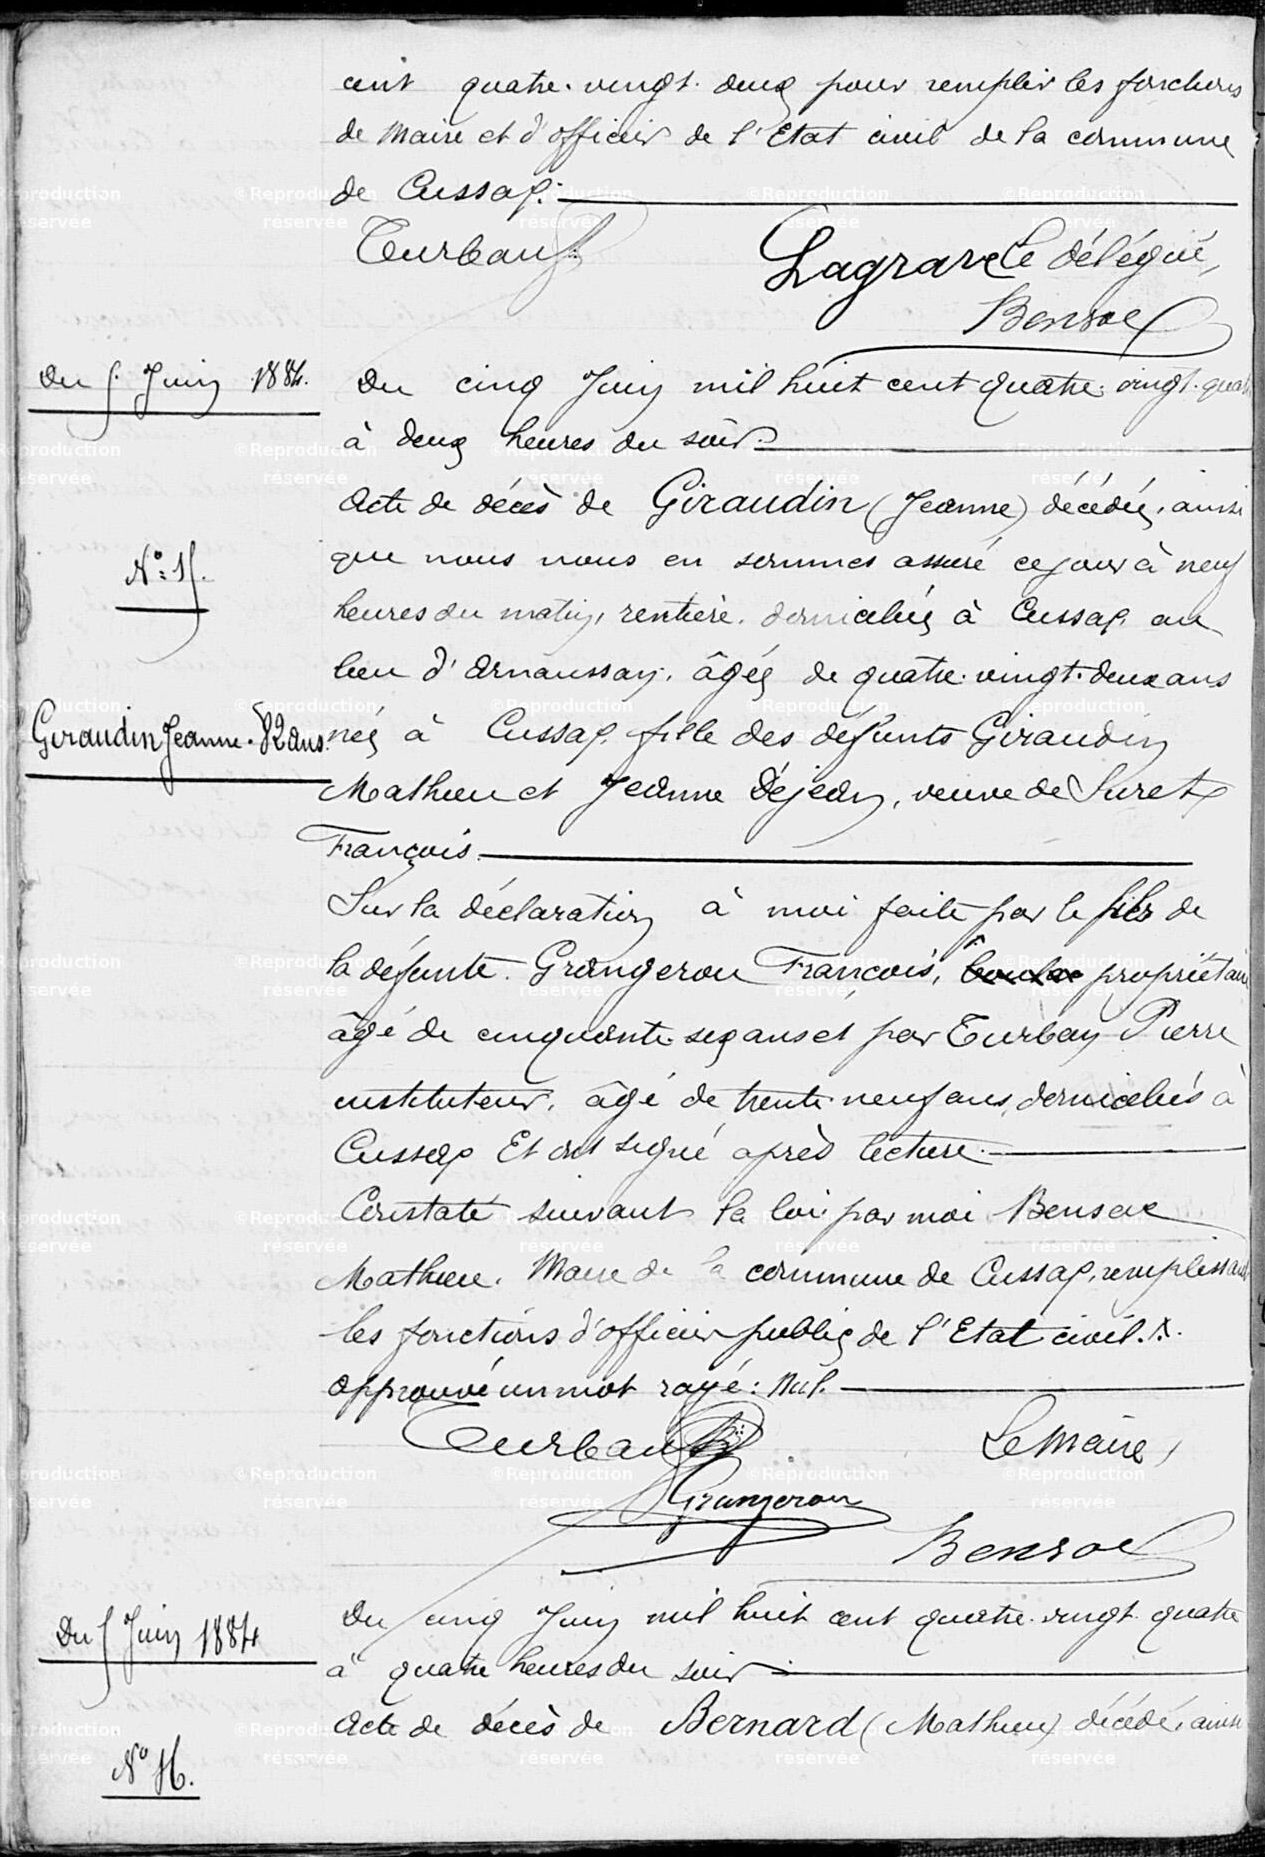 cent quatre-vingt-deux pour remplir les fonctions
de Maire et d'officier de l'Etat civil de la commune
de Cussac.
Turban Lagrave Le délégué,
Bensac
Du 5 Juin 1884.
Du cinq Juin mil huit cent quatre-vingt-quatre
à deux heures du soir.
N° 15.
Acte de décès de Giraudin (Jeanne) décédée, ainsi
que nous nous en sommes assuré ce jour à neuf
heures du matin, rentière, domiciliée à Cussac, au
lieu d'Arnaussan, âgée de quatre-vingt-deux ans
Giraudin Jeanne. 82 ans.
née à Cussac, fille des défunts Giraudin
Mathieu et Jeanne Déjean, veuve de Suret
François.
Sur la déclaration à moi faite par le fils de
la défunte. Grangerou François, propriétaire
âgé de cinquante-six ans et par Turban Pierre
instituteur, âgé de trente-neuf ans, domiciliés à
Cussac Et ont signé après lecture.
Constaté suivant la loi par moi Bensac
Mathieu, Maire de la commune de Cussac, remplissant
les fonctions d'officier public de l'Etat civil.
Approuvé un mot rayé: Nul.
Turban Le Maire,
Grangerou
Bensac
Du 5 Juin 1884
Du cinq Juin mil huit cent quatre-vingt-quatre
à quatre heures du soir
Acte de décès de Bernard (Mathieu) décédé, ainsi
N° 16.
©Reproduction réservée